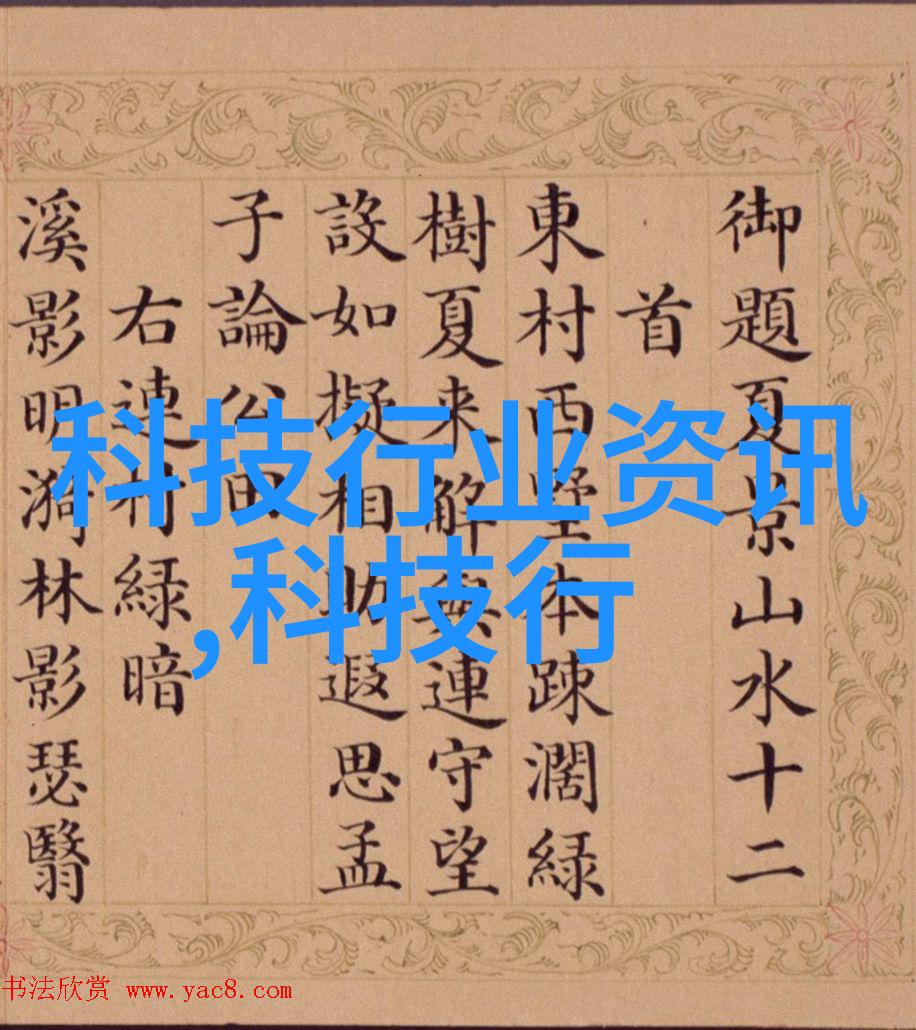 御題夏景山水十二
首
東村西墅本踈濶緑
樹夏来解連守望
設如擬相助遐思孟
子論公田
右連村緑暗
溪影明漪林影瑟翳
科技行业资讯
,科技行
书法欣赏 www.yac8.com